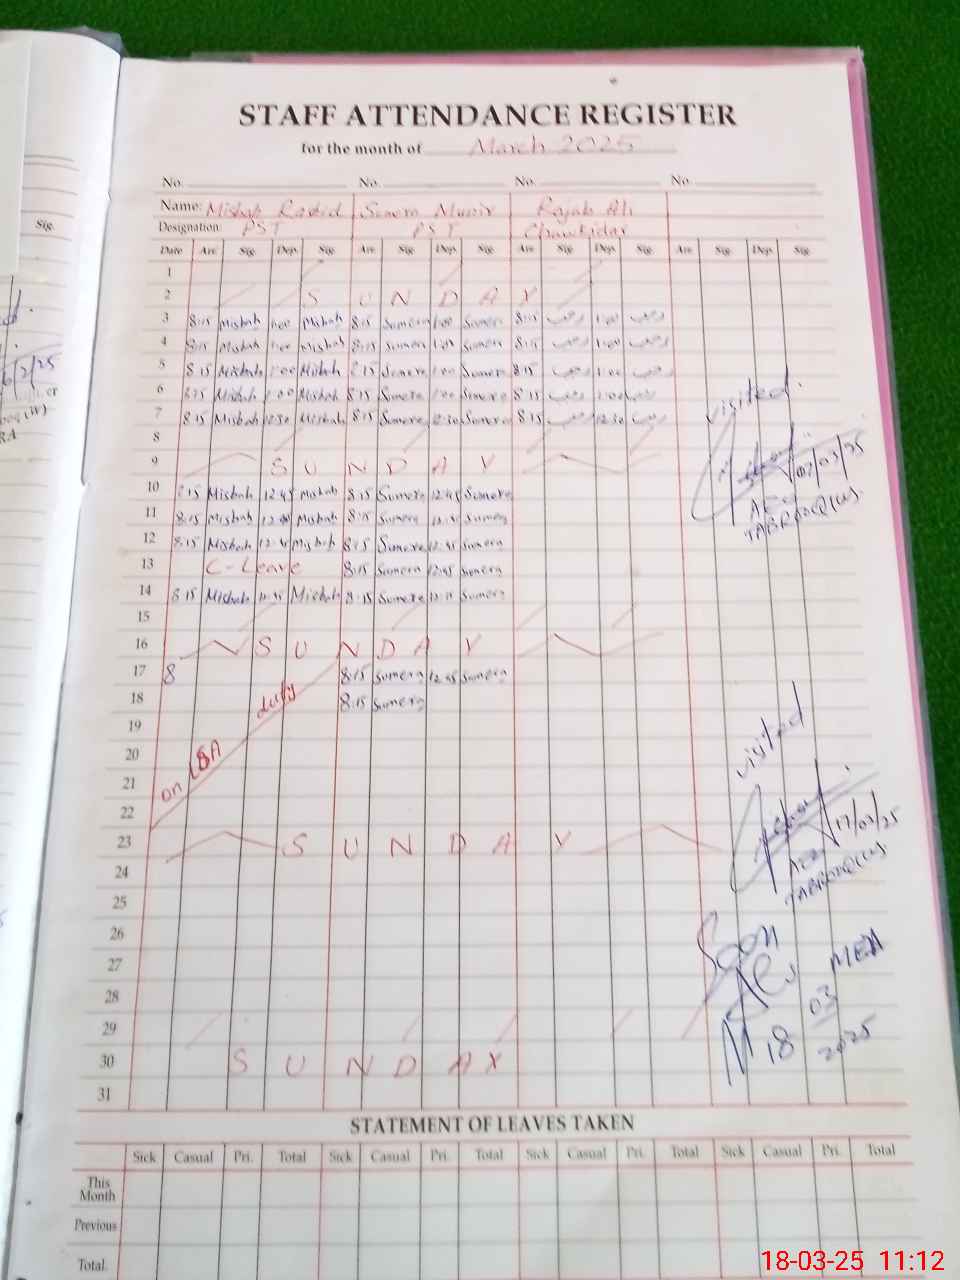 STAFF ATTENDANCE REGISTER
for the month of March 2025
No. No. No. No.
Name: Misbah Rashid Sumera Munir Rajab Ali
Designation: PST PST Chawkidar
Date Arr. Sig. Dep. Sig. Arr. Sig. Dep. Sig. Arr. Sig. Dep. Sig. Arr. Sig. Dep. Sig.
1
2 SUNDAY
3 8:15 Misbah 1:00 Misbah 8:15 Sumera 1:00 Sumera 8:15 رجب 1:00 رجب
4 8:15 Misbah 1:00 Misbah 8:15 Sumera 1:00 Sumera 8:15 رجب 1:00 رجب
5 8:15 Misbah 1:00 Misbah 8:15 Sumera 1:00 Sumera 8:15 رجب 1:00 رجب
6 8:15 Misbah 1:00 Misbah 8:15 Sumera 1:00 Sumera 8:15 رجب 1:00 رجب
7 8:15 Misbah 12:30 Misbah 8:15 Sumera 12:30 Sumera 8:15 رجب 12:30 رجب
8
9 SUNDAY
10 8:15 Misbah 12:45 Misbah 8:15 Sumera 12:45 Sumera
11 8:15 Misbah Misbah 8:15 Sumera Sumera
12 8:15 Misbah 12:45 Misbah 8:15 Sumera 12:45 Sumera
13 C-Leave 8:15 Sumera 12:45 Sumera
14 8:15 Misbah Misbah 8:15 Sumera 12:15 Sumera
15
16 SUNDAY
17 8 8:15 Sumera 12:45 Sumera
18 8:15 Sumera
on LSA duty
19
20
21
22
23 SUNDAY
24
25
26
27
28
29
30 SUNDAY
31
visited.
07/03/25
AEO
visited
17/03/25
AEO
Seen
MEA
18
03
2025
STATEMENT OF LEAVES TAKEN
Sick Casual Pri. Total Sick Casual Pri. Total Sick Casual Pri. Total Sick Casual Pri. Total
This Month
Previous
Total.
Sig.
18-03-25 11:12